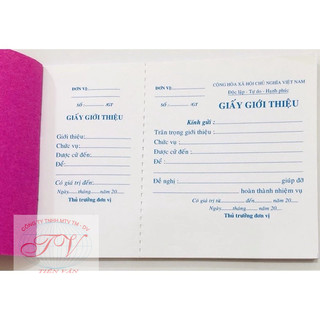 ĐƠN VỊ
SỐ: /GT
GIẤY GIỚI THIỆU
Giới thiệu:
Chức vụ:
Được cử đến:
Để:
Có giá trị đến:
Ngày...... tháng...... năm 20.....
Thủ trưởng đơn vị
CỘNG HÒA XÃ HỘI CHỦ NGHĨA VIỆT NAM
Độc lập - Tự do - Hạnh phúc
ĐƠN VỊ
SỐ: /GT
GIẤY GIỚI THIỆU
Kính gửi:
Trân trọng giới thiệu:
Chức vụ:
Được cử đến:
Để:
Đề nghị: giúp đỡ
hoàn thành nhiệm vụ
Có giá trị từ đến
Ngày...... tháng...... năm 20.....
Thủ trưởng đơn vị
CÔNG TY TNHH MTV TM - DV
TV
TIẾN VĂN